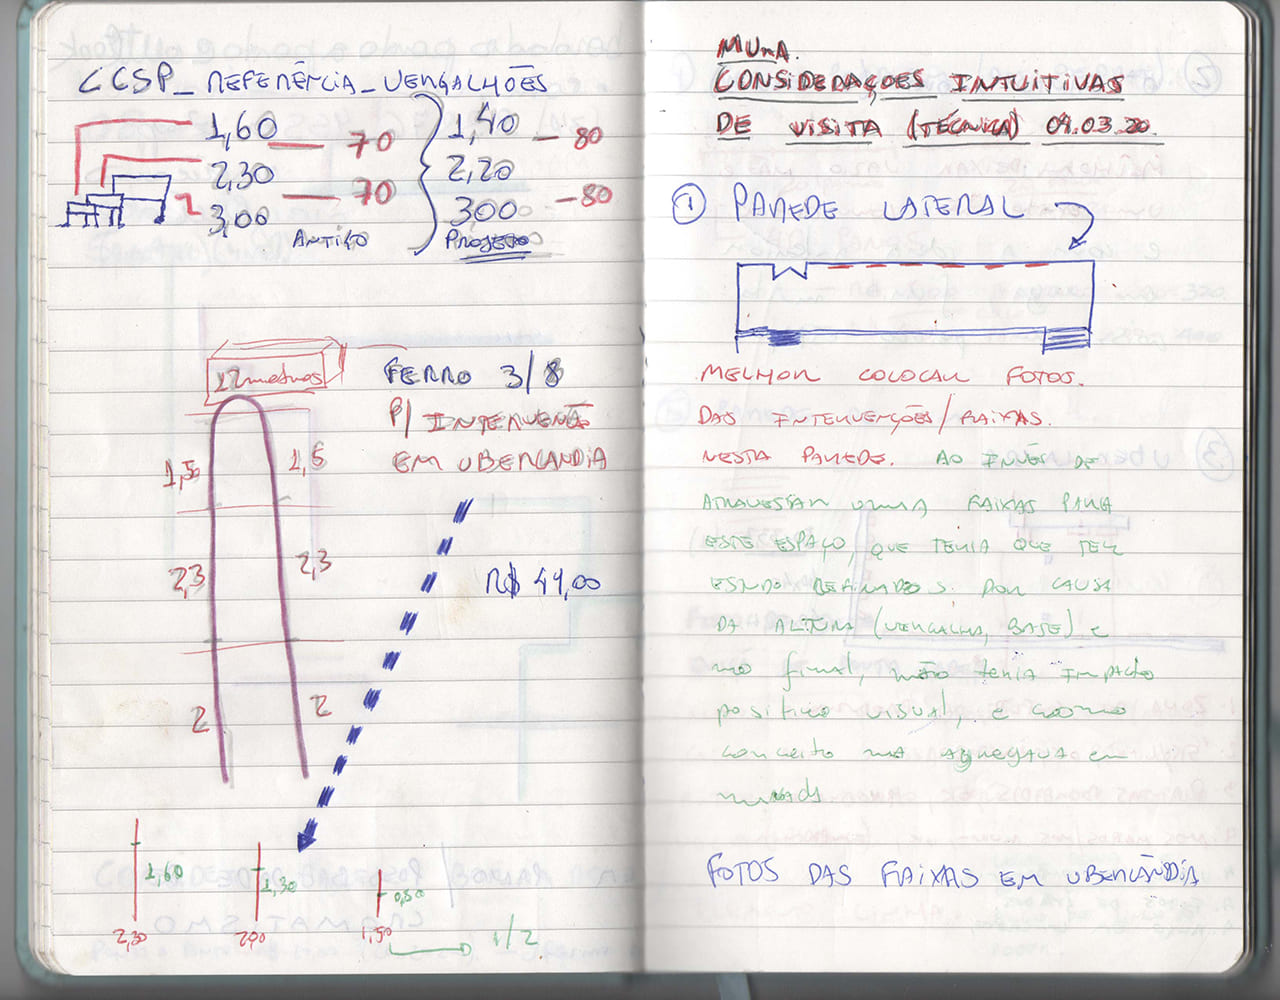 CCSP_REFERÊNCIA_VERGALHÕES
1,60 — 70
2,30
3,00 — 70
ANTIGO
1,40 — 80
2,20
300 — 80
PROJETO
12 metros
FERRO 3/8
P/ INTERVENÇÃO
EM UBERLANDIA
1,5
1,5
2,3
2,3
2
2
R$ 44,00
1,60
1,30
0,80
2,30
2,00
1,50
1/2
MUnA.
CONSIDERAÇÕES INTUITIVAS
DE VISITA (TÉCNICA) 09.03.20
1 PAREDE LATERAL
MELHOR COLOCAR FOTOS.
DAS INTERVENÇÕES/FAIXAS.
NESTA PAREDE. AO INVÉS DE
ATRAVESTAR FAIXAS PARA
ESTE ESPAÇO, QUE TERIA QUE TER
ESTADO REFINADOS. POR CAUSA
DA ALTURA (VERGALHA, BASE) E
no final, não teria IMPACTO
positivo VISUAL, e como
conceito não AGREGAVA em
nada
FOTOS DAS FAIXAS EM UBERLÂNDIA